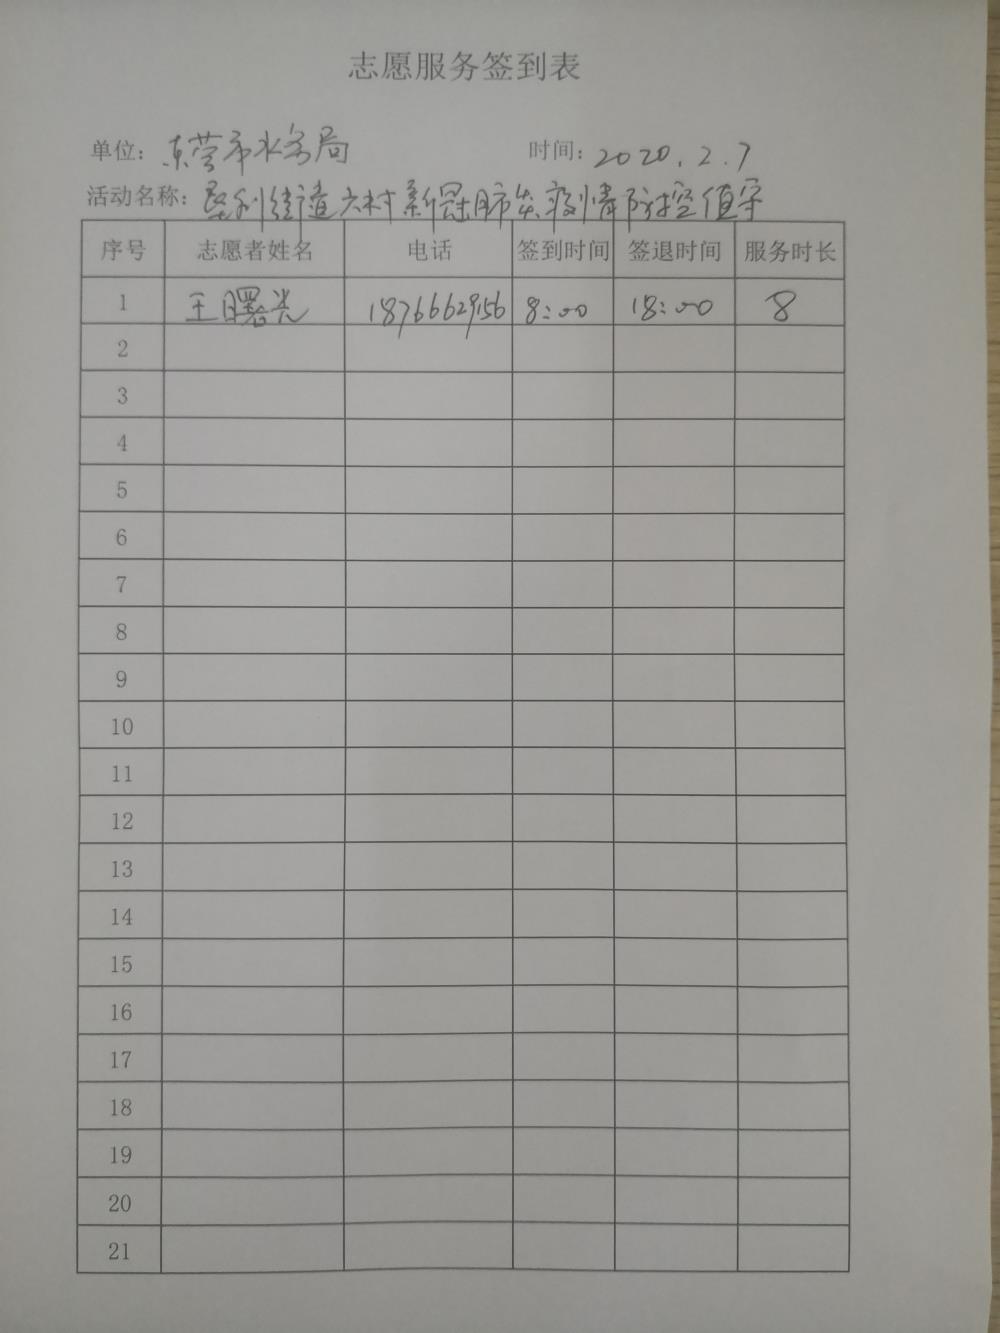 志愿服务签到表
单位：东营市水务局 时间：2020.2.7
活动名称：垦利街道六村新冠肺炎疫情防控值守
序号 志愿者姓名 电话 签到时间 签退时间 服务时长
1 王曙光 18766629156 8:00 18:00 8
2
3
4
5
6
7
8
9
10
11
12
13
14
15
16
17
18
19
20
21